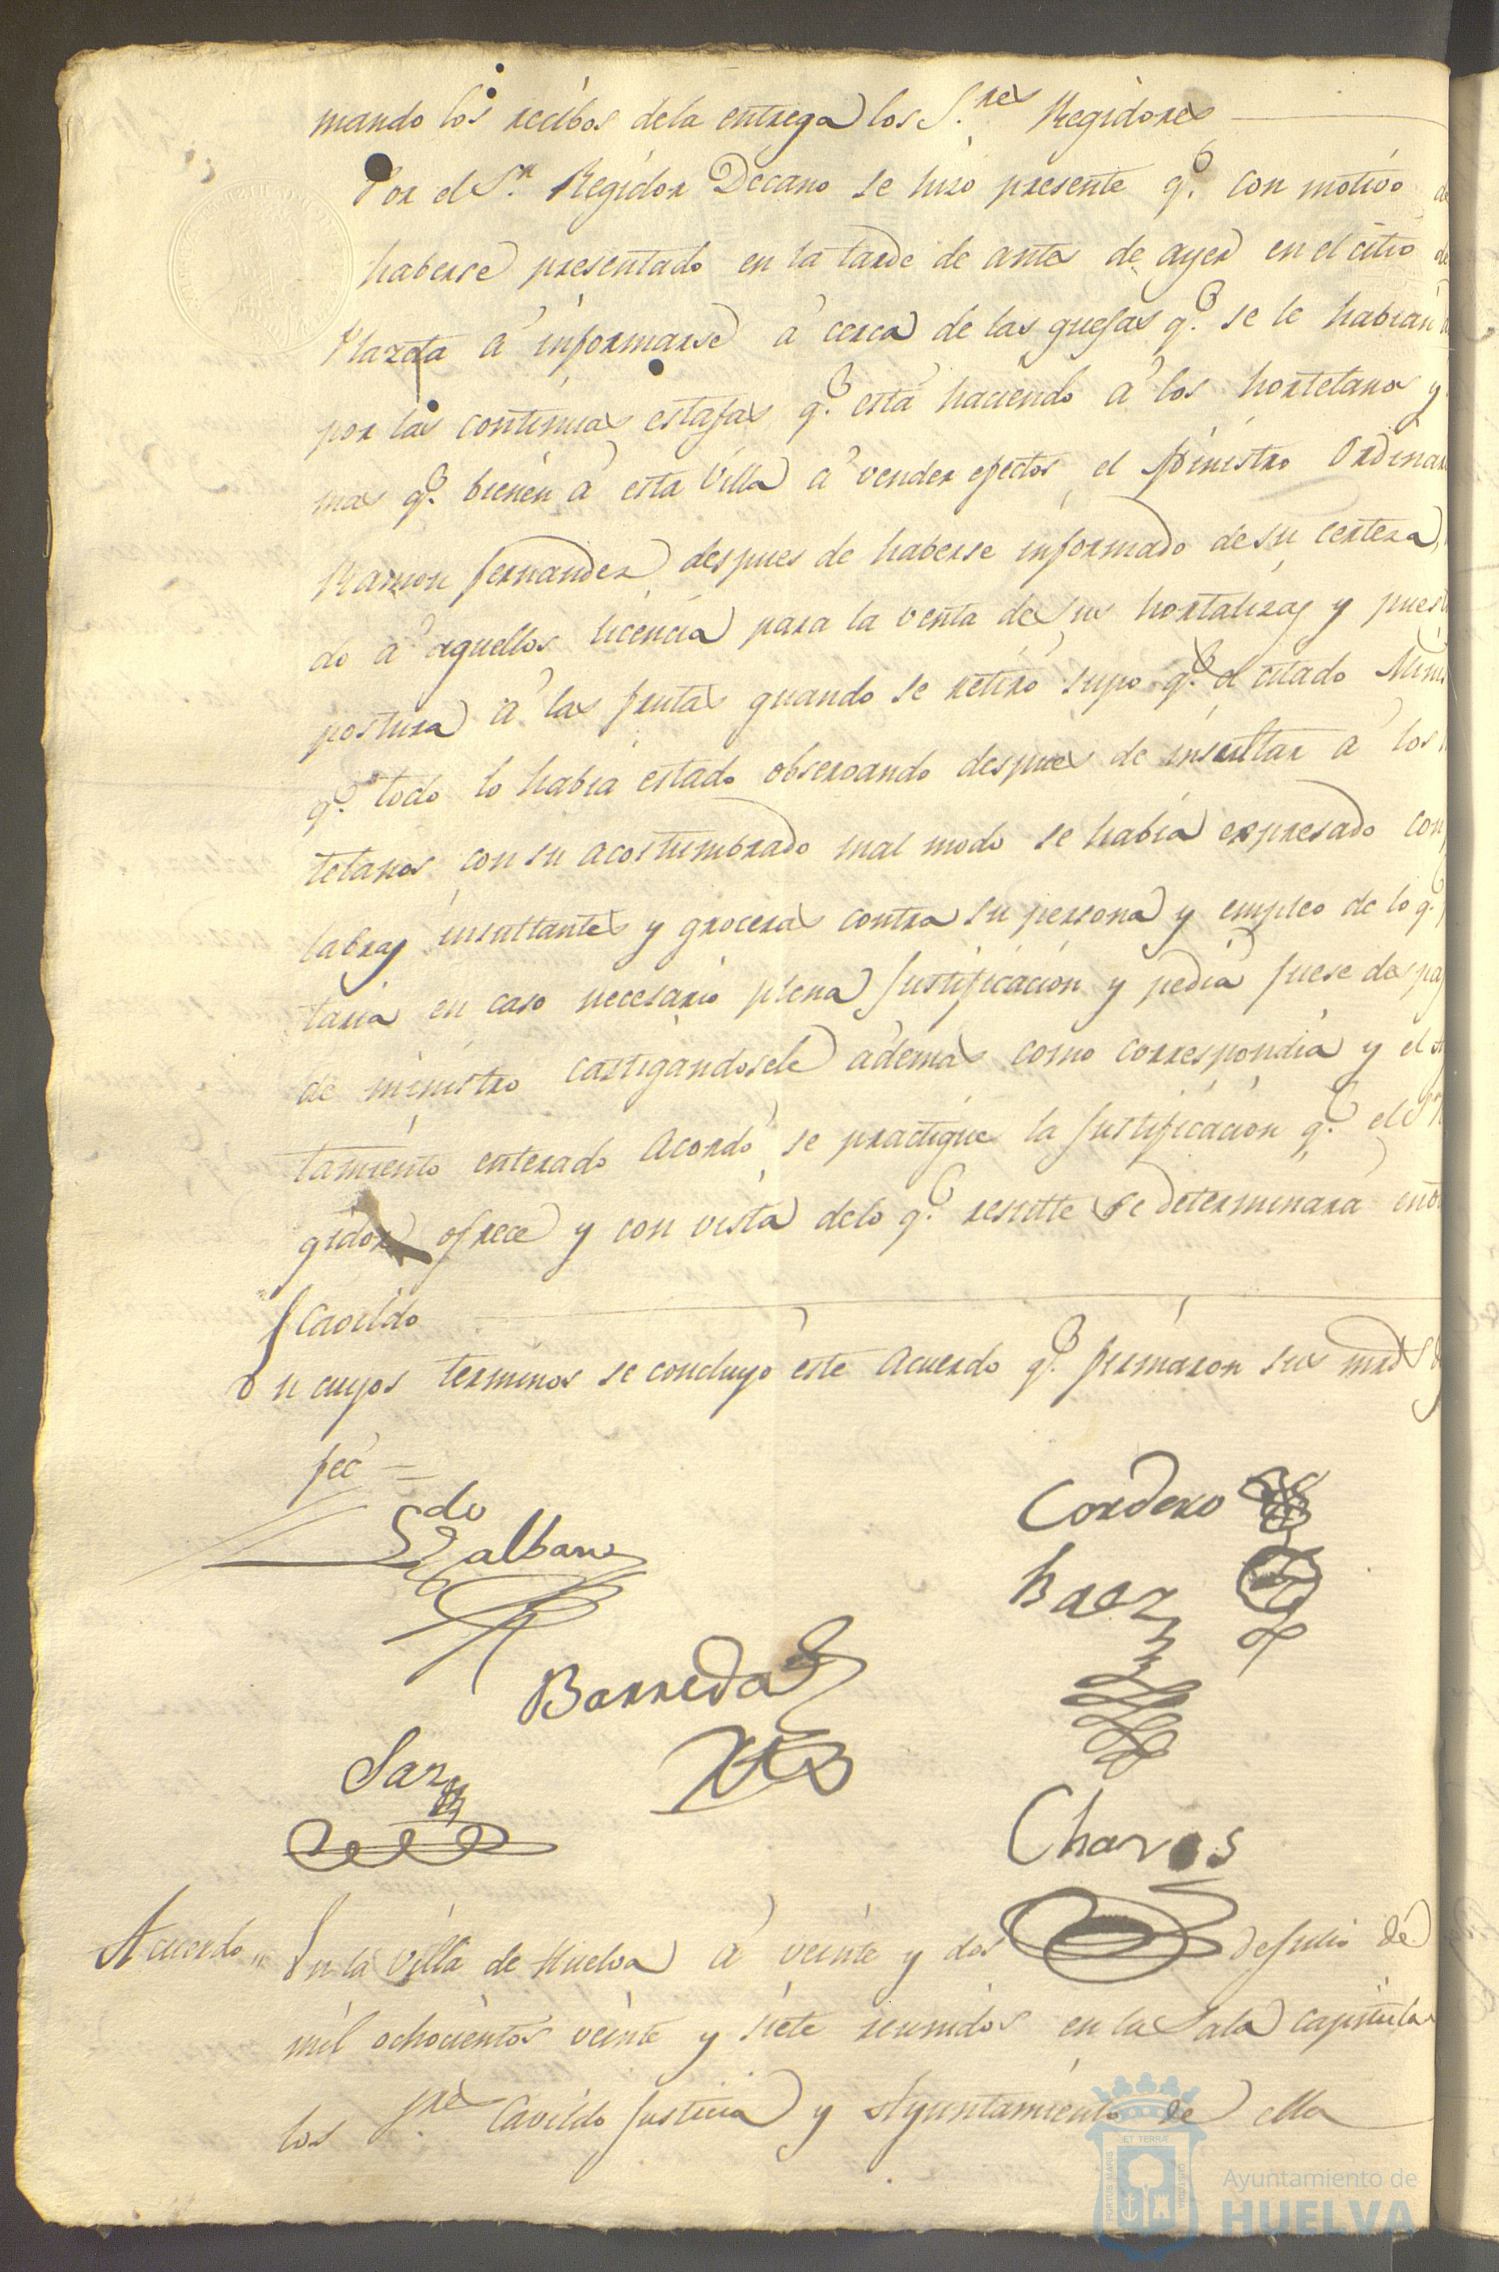 mando los recibos dela entrega los S.res Regidores
Por el S.r Regidor Decano se hizo presente q.e con motivo de
haberse presentado en la tarde de antes de ayer en el citio de
Plazeta á informarse á cerca de las quejas q.e se le habian
por las continuas estafas q.e está haciendo á los hortelanos y
mas q.e bienen á esta Villa á vender efectos, el Ministro Ordinar
Ramon Fernandez, despues de haberse informado de su certeza,
do á aquellos licencia para la venta de sus hortalizas y puest
postura á las frutas quando se retiró supo q.e el citado Mini
q.e todo lo habia estado observando despues de insultar á los
telanos con su acostumbrado mal modo se habia expresado con
labras insultantes y groceras contra su persona y empleo de lo q.e
taria en caso necesario plena Justificacion y pedia fuese despa
de ministro castigandosele ademas como correspondia y el
tamiento enterado Acordó se practique la Justificacion q.e el S.r
gidor ofrece y con vista delo q.e resulte se determinará en
Cavildo
En cuyos terminos se concluyó este Acuerdo q.e firmaron sus mrds
fee =
Ldo Galban
Cordero
Baez
Barreda
Saz
Chaves
Acuerdo
En la Villa de Huelva á veinte y dos de Julio de
mil ochocientos veinte y siete reunidos en la Sala capitular
los Sres Cavildo Justicia y Ayuntamiento de ella
PORTUS MARIS
ET TERRÆ
Ayuntamiento de
HUELVA